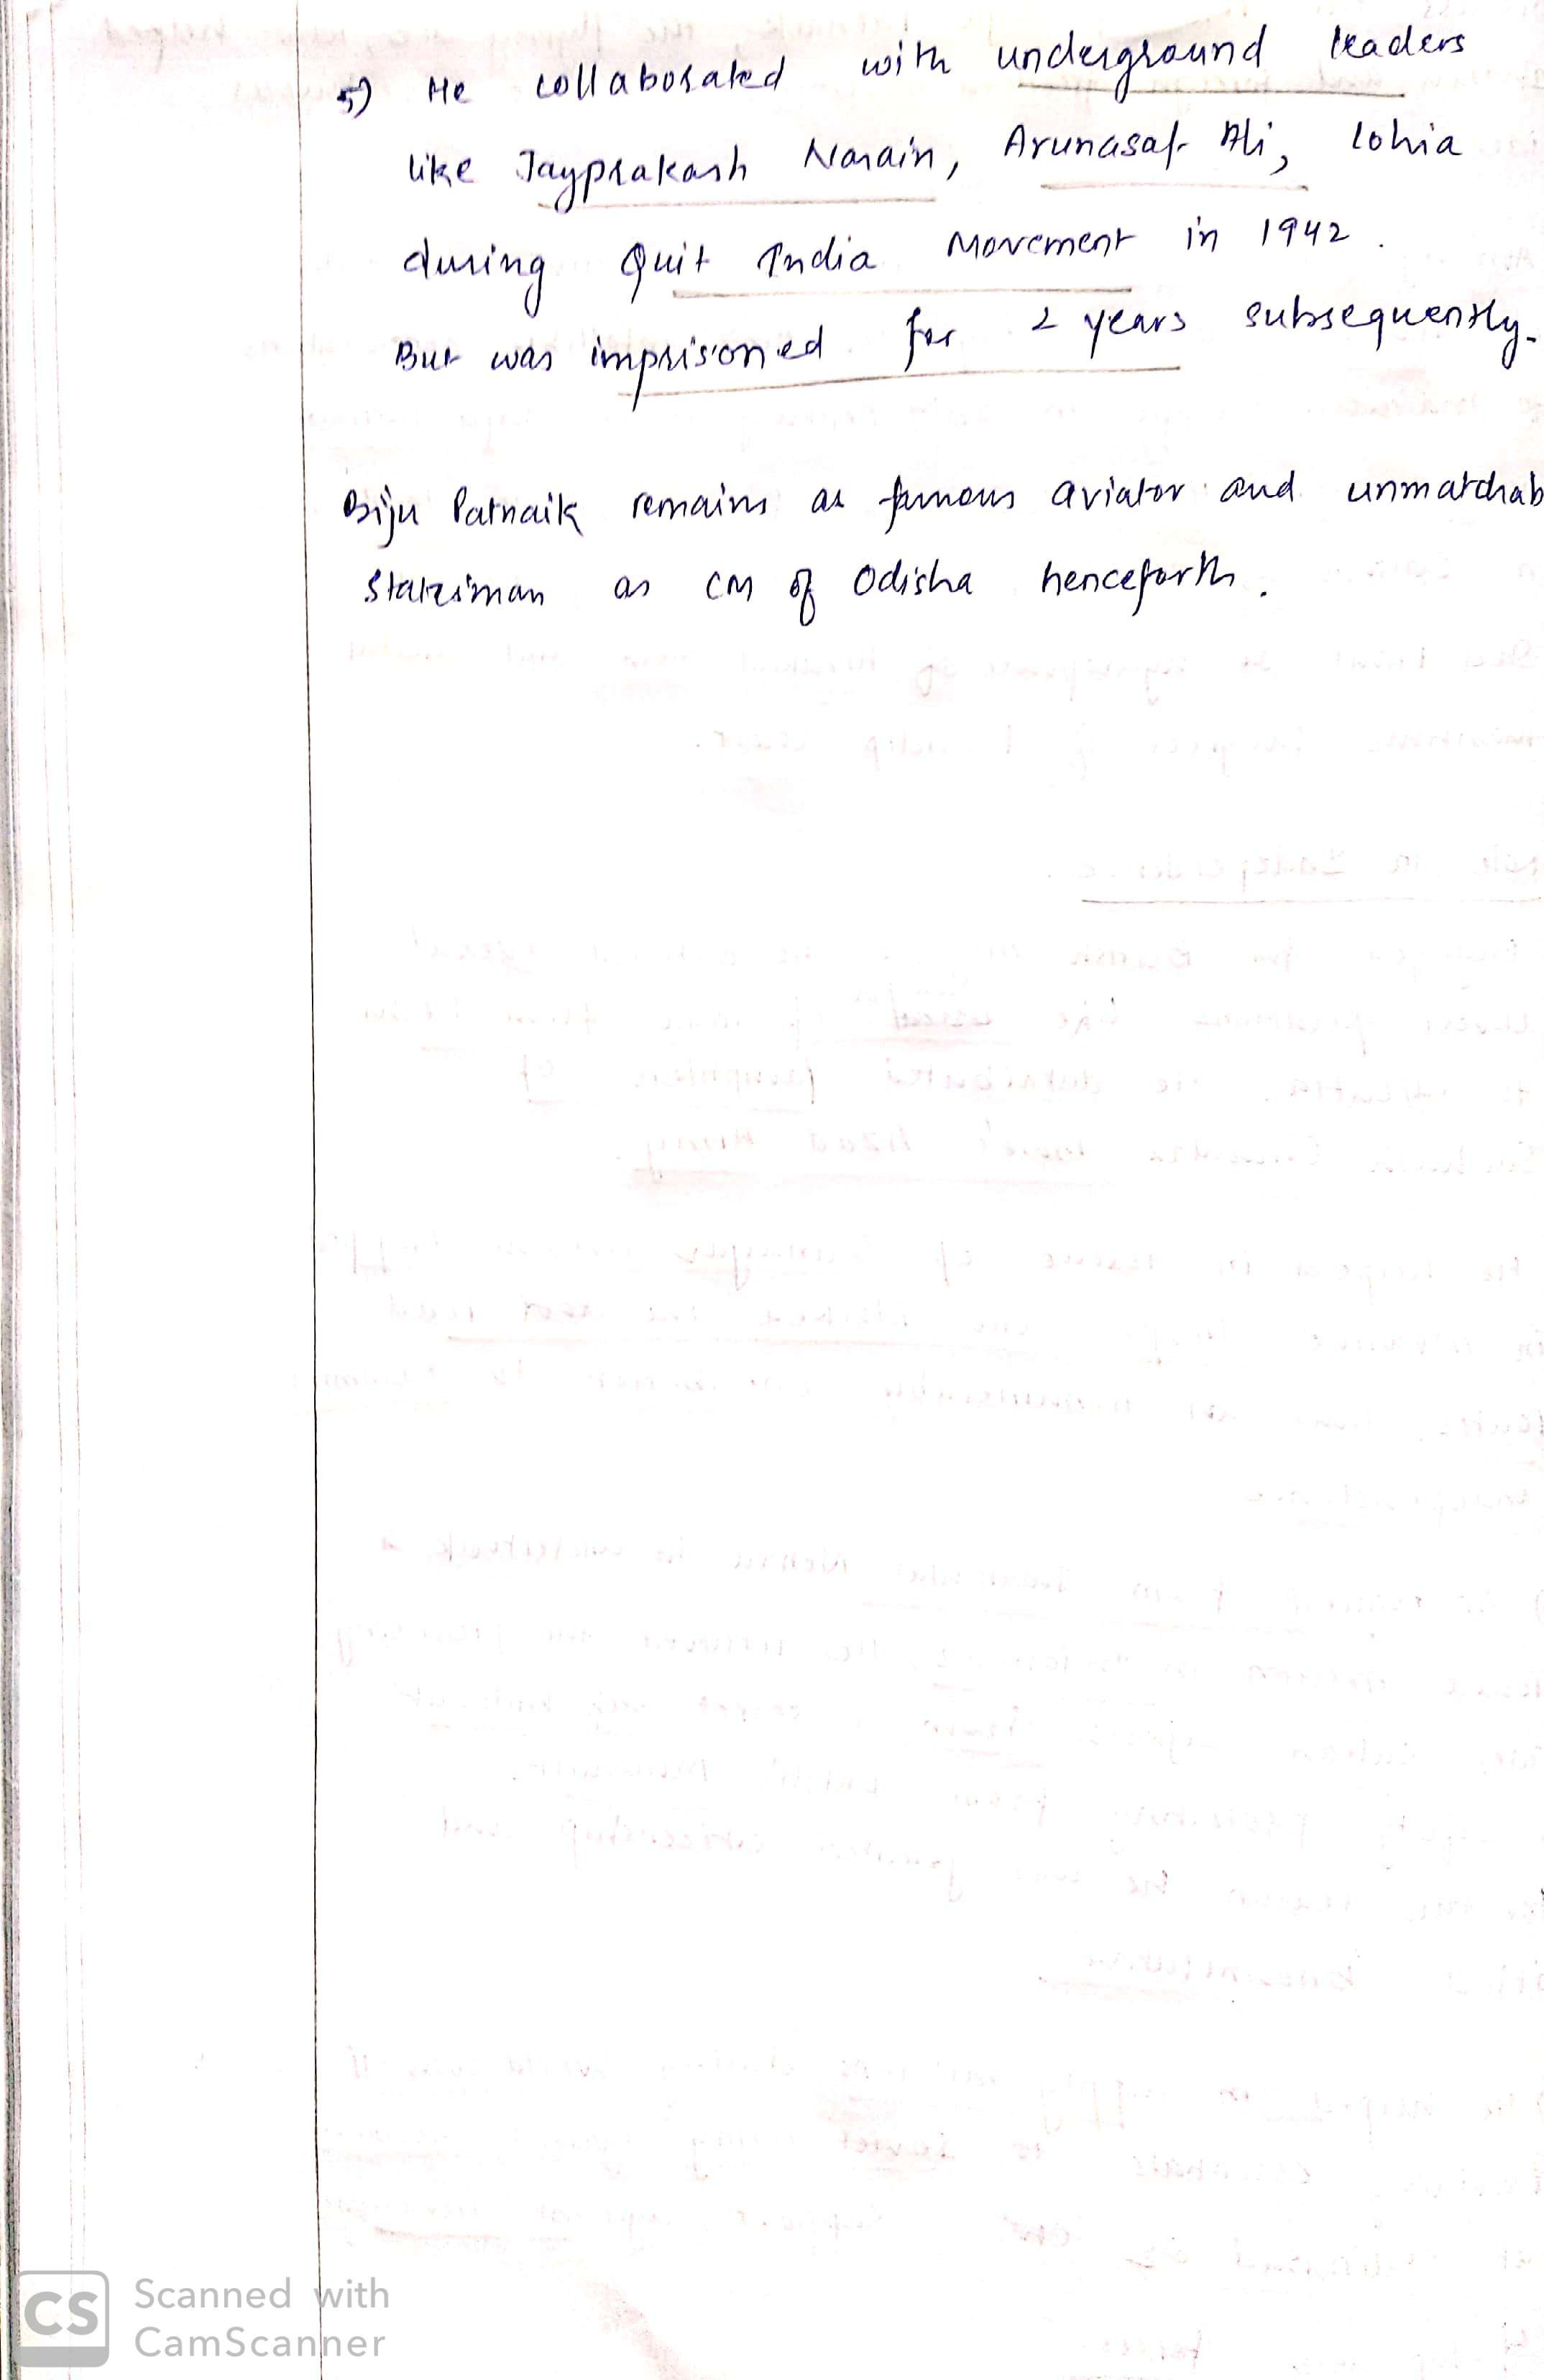 5) He collaborated with underground leaders
like Jayprakash Narain, Arunasaf Ali, Lohia
during Quit India Movement in 1942.
But was imprisoned for 2 years subsequently.
Biju Patnaik remains as famous aviator and unmatchab
Statesman as CM of Odisha henceforth.
CS Scanned with
CamScanner